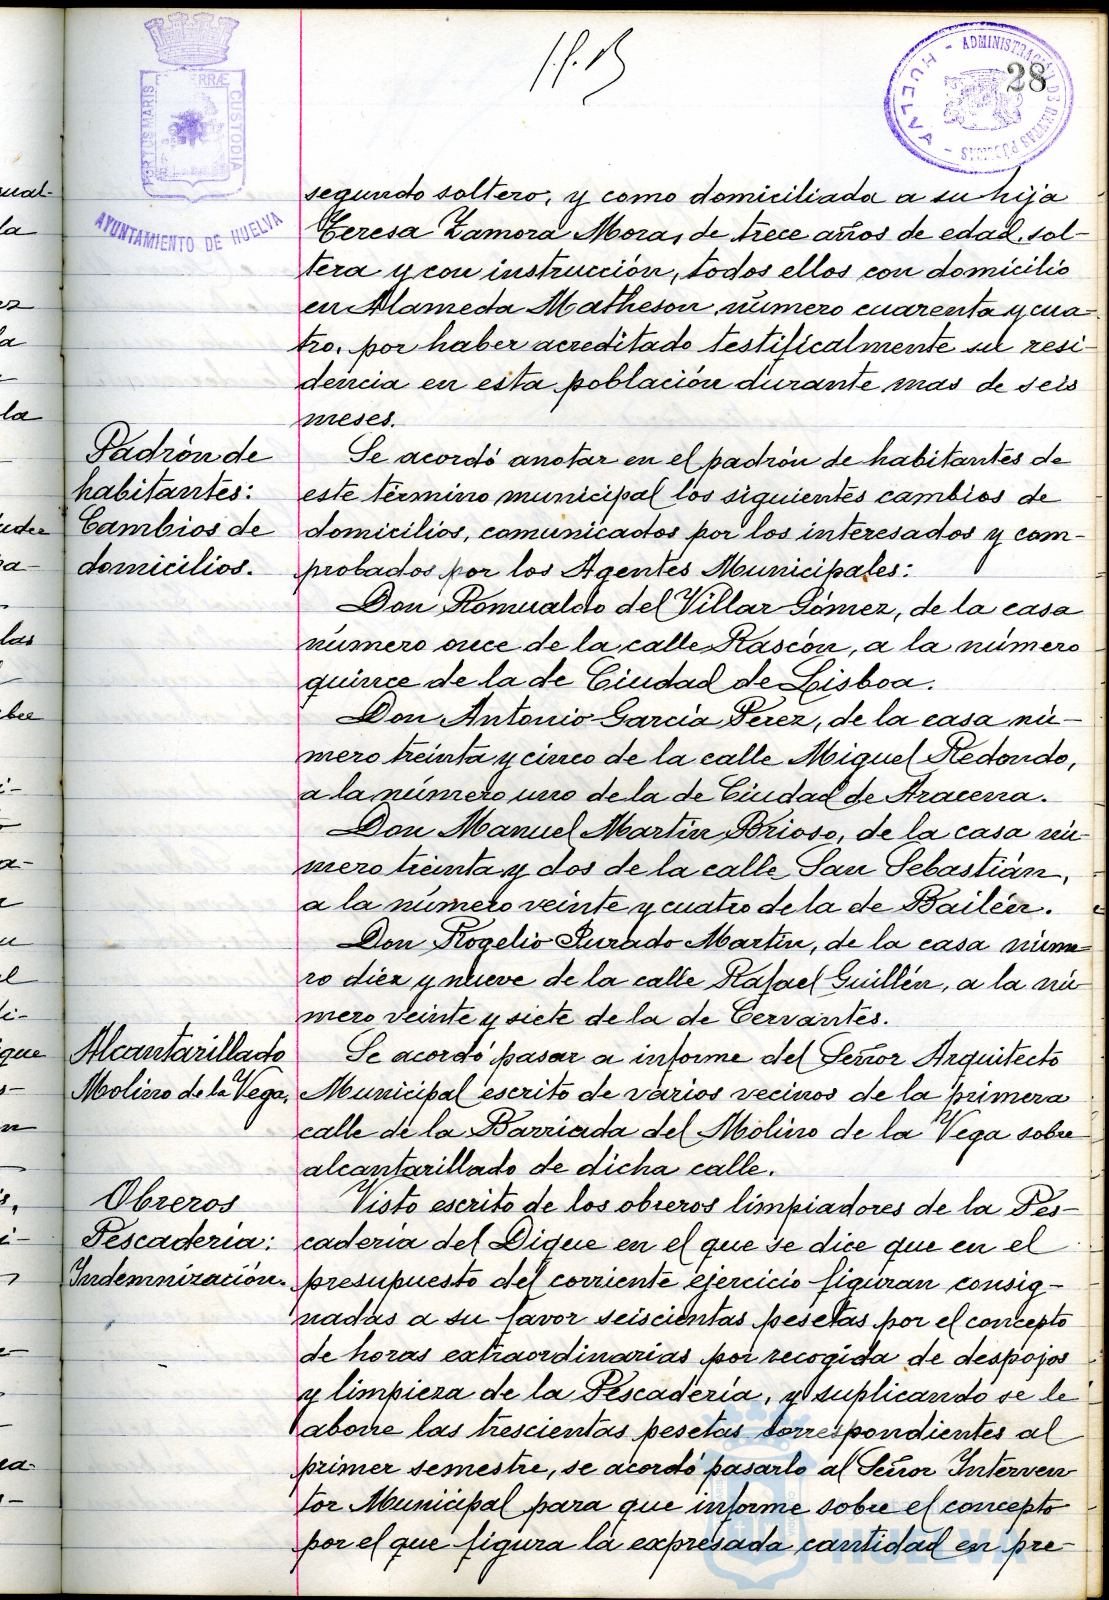 PORTUS MARIS ET TERRÆ CUSTODIA
AYUNTAMIENTO DE HUELVA
ADMINISTRACIÓN DE RENTAS PÚBLICAS - HUELVA -
28
segundo soltero, y como domiciliada a su hija
Teresa Zamora Mora, de trece años de edad, sol-
tera y con instrucción, todos ellos con domicilio
en Alameda Matheson número cuarenta y cua-
tro, por haber acreditado testificalmente su resi-
dencia en esta población durante mas de seis
meses.
Padrón de
habitantes:
Cambios de
domicilios.
Se acordó anotar en el padrón de habitantes de
este término municipal los siguientes cambios de
domicilios, comunicados por los interesados y com-
probados por los Agentes Municipales:
Don Romualdo del Villar Gómez, de la casa
número once de la calle Rascón, a la número
quince de la de Ciudad de Lisboa.
Don Antonio García Pérez, de la casa nú-
mero treinta y cinco de la calle Miguel Redondo,
a la número uno de la de Ciudad de Aracena.
Don Manuel Martín Brioso, de la casa nú-
mero treinta y dos de la calle San Sebastián,
a la número veinte y cuatro de la de Bailén.
Don Rogelio Jurado Martín, de la casa núme-
ro diez y nueve de la calle Rafael Guillén, a la nú-
mero veinte y siete de la de Cervantes.
Alcantarillado
Molino de la Vega.
Se acordó pasar a informe del Señor Arquitecto
Municipal escrito de varios vecinos de la primera
calle de la Barriada del Molino de la Vega sobre
alcantarillado de dicha calle.
Obreros
Pescadería:
Indemnización.
Visto escrito de los obreros limpiadores de la Pes-
cadería del Dique en el que se dice que en el
presupuesto del corriente ejercicio figuran consig-
nadas a su favor seiscientas pesetas por el concepto
de horas extraordinarias por recogida de despojos
y limpieza de la Pescadería, y suplicando se le
abone las trescientas pesetas correspondientes al
primer semestre, se acordó pasarlo al Señor Interven
tor Municipal para que informe sobre el concepto
por el que figura la expresada cantidad en pre-
HUELVA